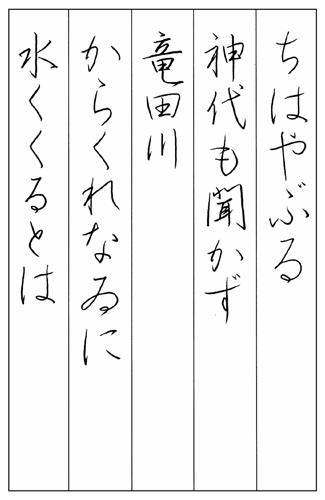 ちはやぶる
神代も聞かず
竜田川
からくれなゐに
水くくるとは